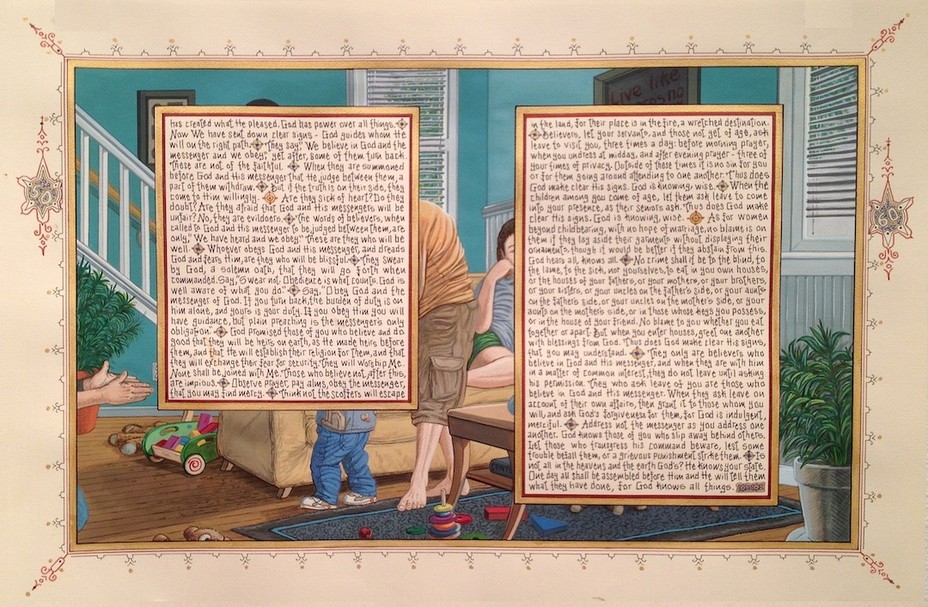 Live like
has created what He pleased. God has power over all things.
Now We have sent down clear signs - God guides whom He
will on the right path. They say, "We believe in God and the
messenger and we obey," yet after, some of them turn back.
These are not of the faithful. When they are summoned
before God and His messenger that He judge between them, a
part of them withdraw. But if the truth is on their side, they
come to Him willingly. Are they sick of heart? Do they
doubt? Are they afraid that God and His messengers will be
unfair? No, they are evildoers. The words of believers, when
called to God and His messenger to be judged between them, are
only, "We have heard and we obey." These are they who will be
well. Whoever obeys God and His messenger, and dreads
God and fears Him, are they who will be blissful. They swear
by God, a solemn oath, that they will go forth when
commanded. Say, "Swear not. Obedience is what counts. God is
well aware of what you do." Say, "Obey God and the
messenger of God. If you turn back, the burden of duty is on
him alone, and yours is your duty. If you obey Him you will
have guidance, but plain preaching is the messenger's only
obligation." God promised those of you who believe and do
good that they will be heirs on earth, as He made heirs before
them, and that He will establish their religion for them, and that
they will exchange their fear for security. They will worship Me.
None shall be joined with Me. Those who believe not, after this,
are impious. Observe prayer, pay alms, obey the messenger,
that you may find mercy. Think not the scoffers will escape
in the land, for their place is in the fire, a wretched destination.
Believers, let your servants, and those not yet of age, ask
leave to visit you, three times a day: before morning prayer,
when you undress at midday, and after evening prayer - three of
your times of privacy. Outside of these times it is no sin for you
or for them going around attending to one another. Thus does
God make clear His signs. God is knowing, wise. When the
children among you come of age, let them ask leave to come
into your presence, as their seniors ask. Thus does God make
clear His signs. God is knowing, wise. As for women
beyond childbearing, with no hope of marriage, no blame is on
them if they lay aside their garments without displaying their
ornaments, though it would be better if they abstain from this.
God hears all, knows all. No crime shall it be to the blind, to
the lame, to the sick, nor yourselves, to eat in you own houses,
or the houses of your fathers, or your mothers, or your brothers,
or your sisters, or your uncles on the father's side, or your aunts
on the father's side, or your uncles on the mother's side, or your
aunts on the mother's side, or in those whose keys you possess,
or in the house of your friend. No blame to you whether you eat
together or apart. But when you enter houses, greet one another
with blessings from God. Thus does God make clear His signs,
that you may understand. They only are believers who
believe in God and His messenger, and when they are with him
in a matter of common interest, they do not leave until asking
his permission. They who ask leave of you are those who
believe in God and His messenger. When they ask leave on
account of their own affairs, then grant it to those whom you
will, and ask God's forgiveness for them, for God is indulgent,
merciful. Address not the messenger as you address one
another. God knows those of you who slip away behind others.
Let those who transgress his command beware, lest some
trouble befall them, or a grievous punishment strike them. Is
not all in the heavens and the earth God's? He knows your state.
One day all shall be assembled before Him and He will tell them
what they have done, for God knows all things.